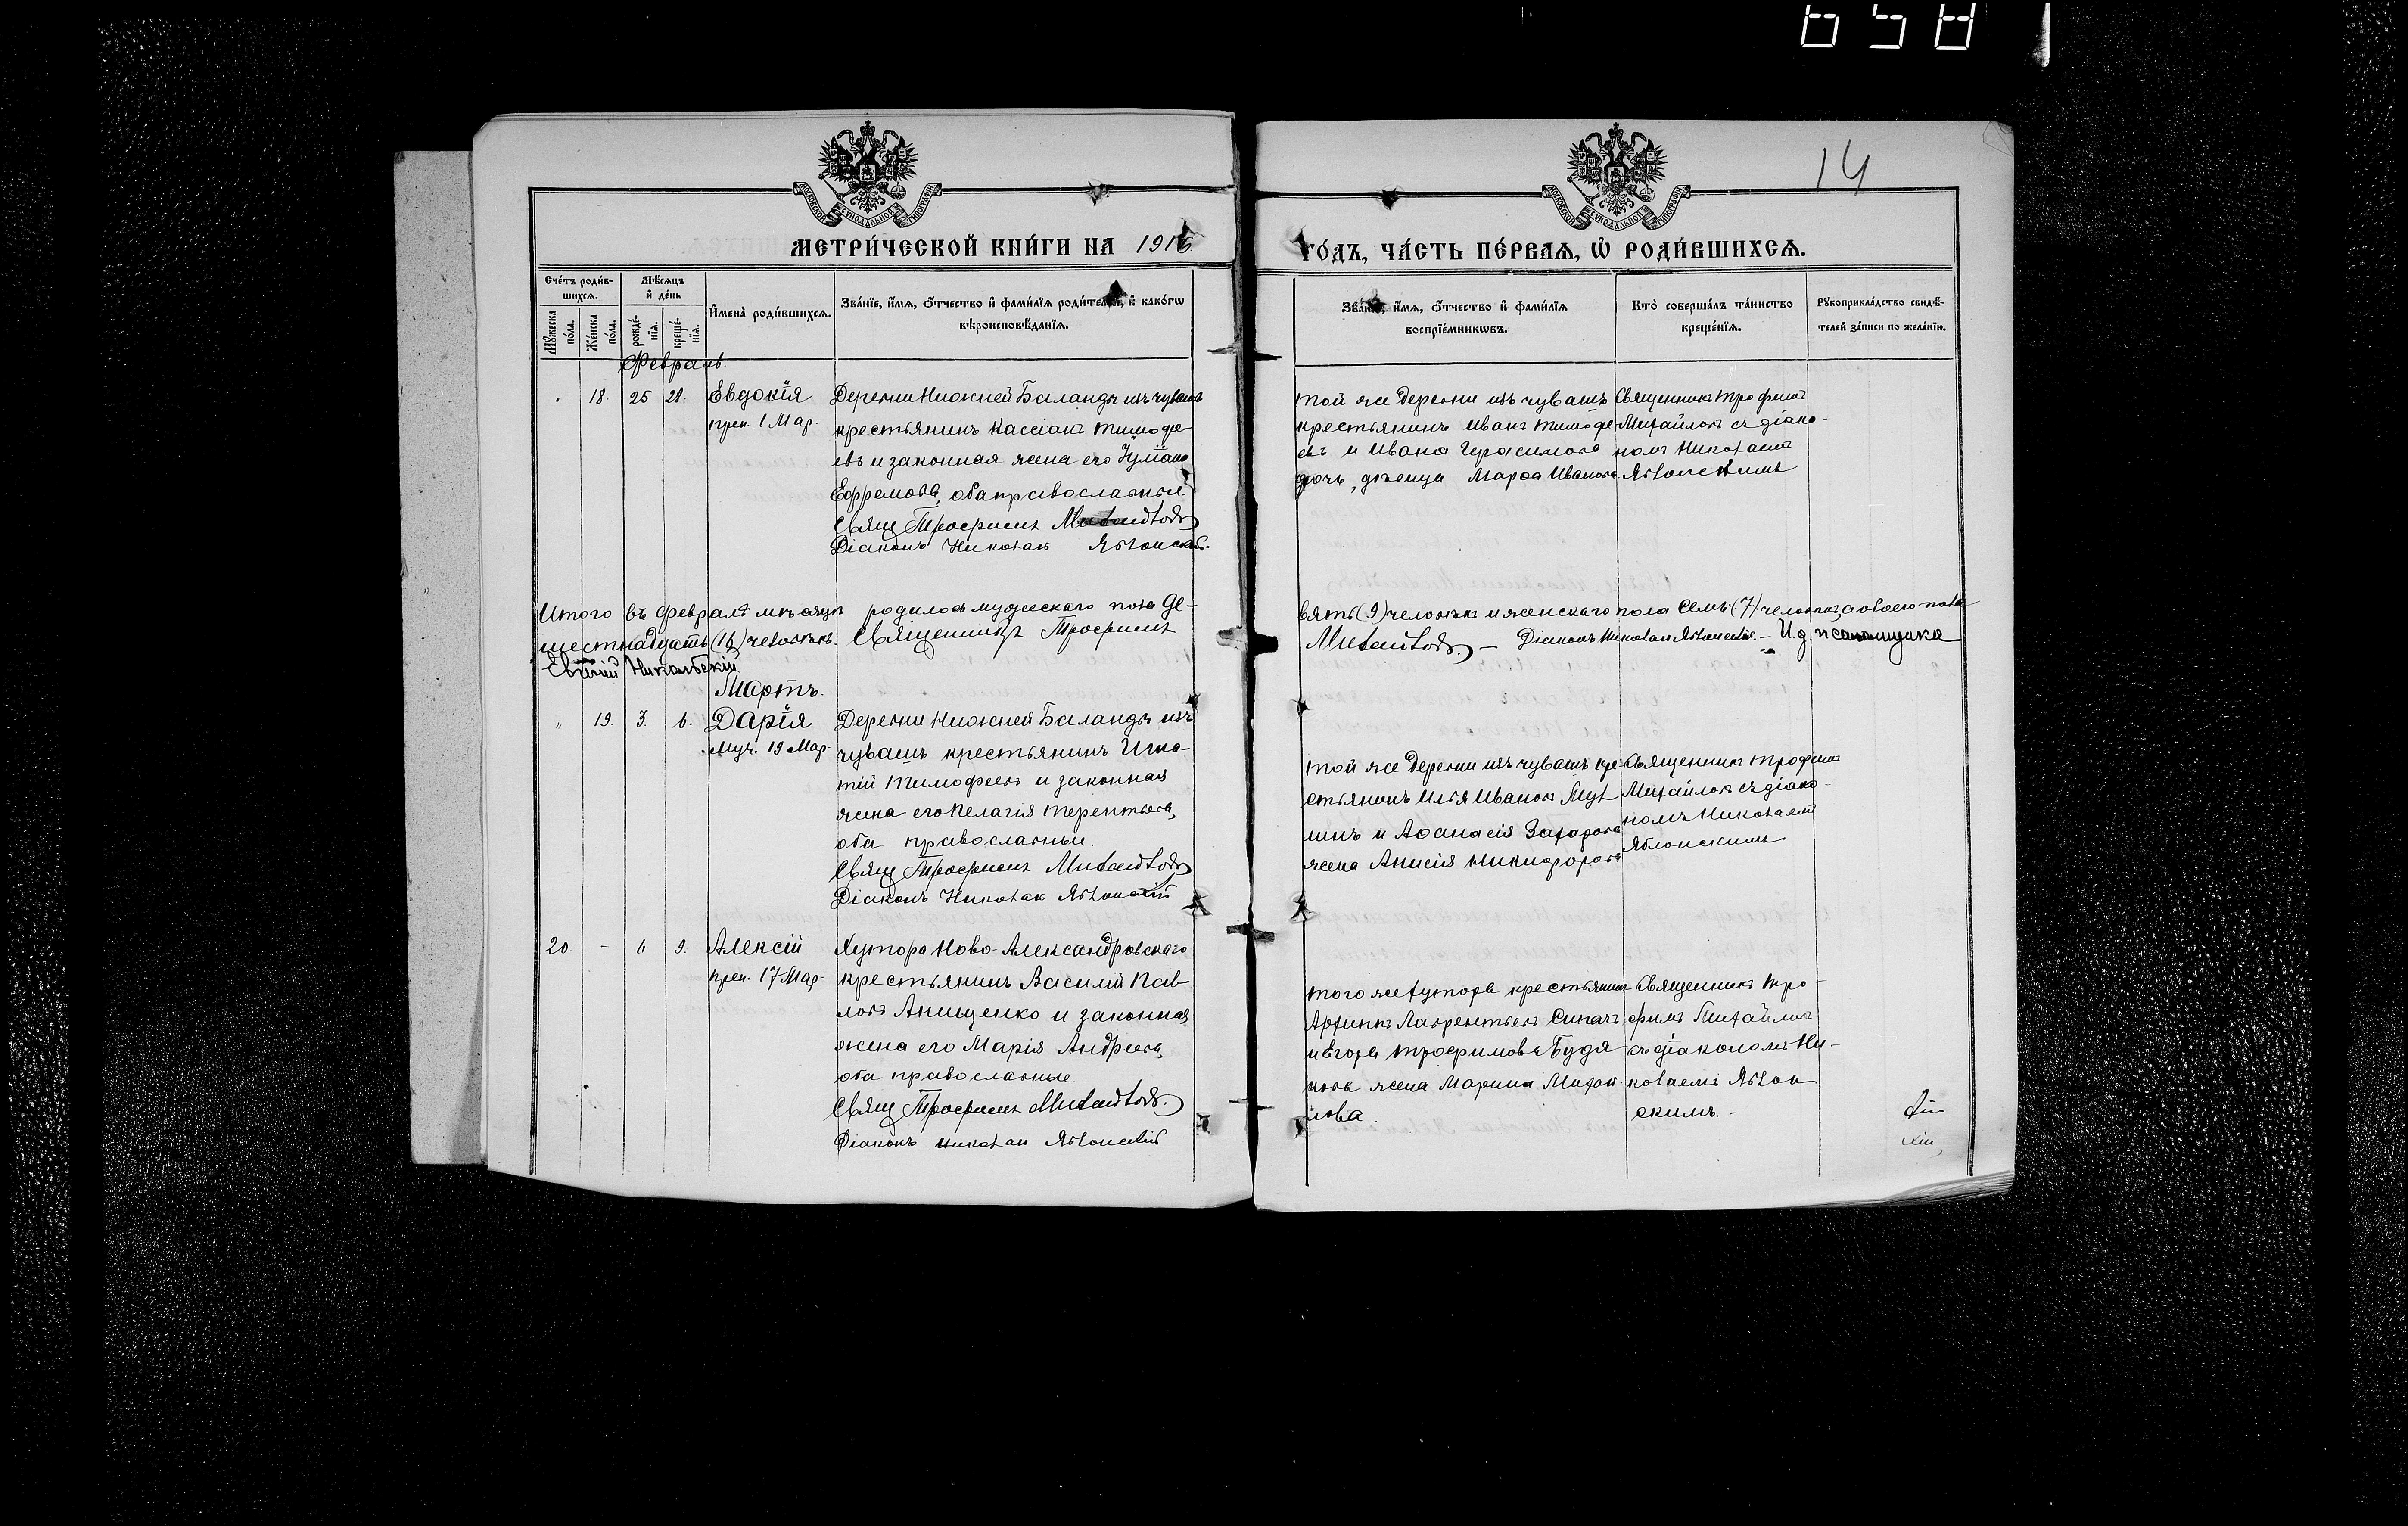 14
МЕТРИ́ЧЕСКОЙ КНИ́ГИ НА 1916
ГО́ДЪ, ЧА́СТЬ ПЕ́РВАЯ, Ѡ҆ РОДИ́ВШИХСЯ.
Сче́тъ роди́в-
шихся.
Мѣ́сяцъ
и҆ де́нь
Мꙋ́жеска по́ла.
Же́нска по́ла.
рожде́-
нїѧ.
креще́-
нїѧ.
И҆мена̀ роди́вшихсѧ.
Зва́нїе, и҆́мѧ, ѻ҆́тчество и҆ фами́лїѧ роди́телей, и҆ како́гѡ
вѣроисповѣ́данїѧ.
Зва́нїе, и҆́мѧ, ѻ҆́тчество и҆ фами́лїѧ
воспрїе́мникѡвъ.
Кто̀ соверша́лъ та́инство
креще́нїѧ.
Рꙋкоприкла́дство свидѣ́-
телей за́писи по жела́нїю.
Февраль
18. 25 28. Евдокія
преп. 1 Мар.
Деревни Нижней Баланды изъ чувашъ
крестьянинъ Кассіанъ Тимофе-
евъ и законная жена его
Ефремова, оба православные.
Свящ Трофимъ Михайловъ
Діаконъ Николай Яблонскій.
той же деревни изъ чувашъ
крестьянинъ Иванъ Тимофе-
евъ и Ивана Герасимова
дочь, девица Марѳа Иванова.
Священникъ Трофимъ
Михайловъ съ діако-
номъ Николаемъ
Яблонскимъ
Итого въ февралѣ мѣсяцѣ родилось мужескаго пола де-
вять (9) человѣкъ и женскаго пола семь (7) человѣкъ, а обоего пола
шестнадцать (16) человѣкъ. Священникъ Трофимъ
Михайловъ. – Діаконъ Николай Яблонскій. – И. д. псаломщика
Никольскій
Мартъ.
" 19. 3. 6. Дарія
муч. 19 Мар.
Деревни Нижней Баланды изъ
чувашъ крестьянинъ Игна-
тій Тимофеевъ и законная
жена его Пелагія Терентьева,
оба православные.
Свящ Трофимъ Михайловъ
Діаконъ Николай Яблонскій
той же деревни изъ чувашъ кре-
стьянинъ Илья Ивановъ
и Аѳанасія Захарова
жена Анисія Никифорова
Священникъ Трофимъ
Михайловъ съ діако-
номъ Николаемъ
Яблонскимъ
20. – 6 9. Алексій
преп. 17 Мар.
Хутора Ново-Александровскаго
крестьянинъ Василій Пав-
ловъ Анищенко и законная
жена его Марія Андреева,
оба православные.
Свящ Трофимъ Михайловъ.
Діаконъ Николай Яблонскій
того же хутора крестьянинъ
Архипъ Лаврентьевъ
и Егора Трофимова Будя
кова жена Марина Михай
лова.
Священникъ Тро-
фимъ Михайловъ
съ діакономъ Ни-
колаемъ Яблон
скимъ. –